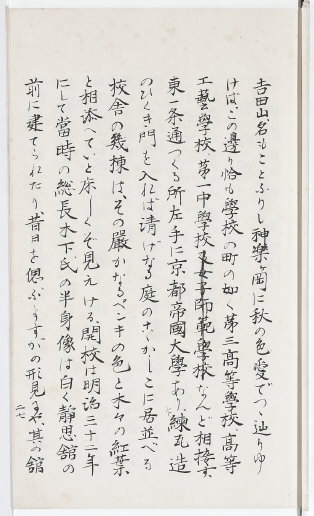 吉田山名もことふりし神樂ヶ岡に秋の色愛でつゝ辿りゆ
けば、この邊り恰も學校の町の如く第三高等學校、高等
工藝學校、第一中學校、女子師範學校なんど相接す、
東一条通つくる所左手に京都帝國大學あり、練瓦造
のひくき門を入れば清げなる庭のこゝかしこに居並べる
校舎の幾棟は、その嚴かなるペンキの色と木々の紅葉
と相添へていと床しくぞ見えける、開校は明治三十二年
にして當時の総長木下氏の半身像は白く静思舘の
前に建てられたり昔日を偲ぶよすがの形見にや、其の舘
二七